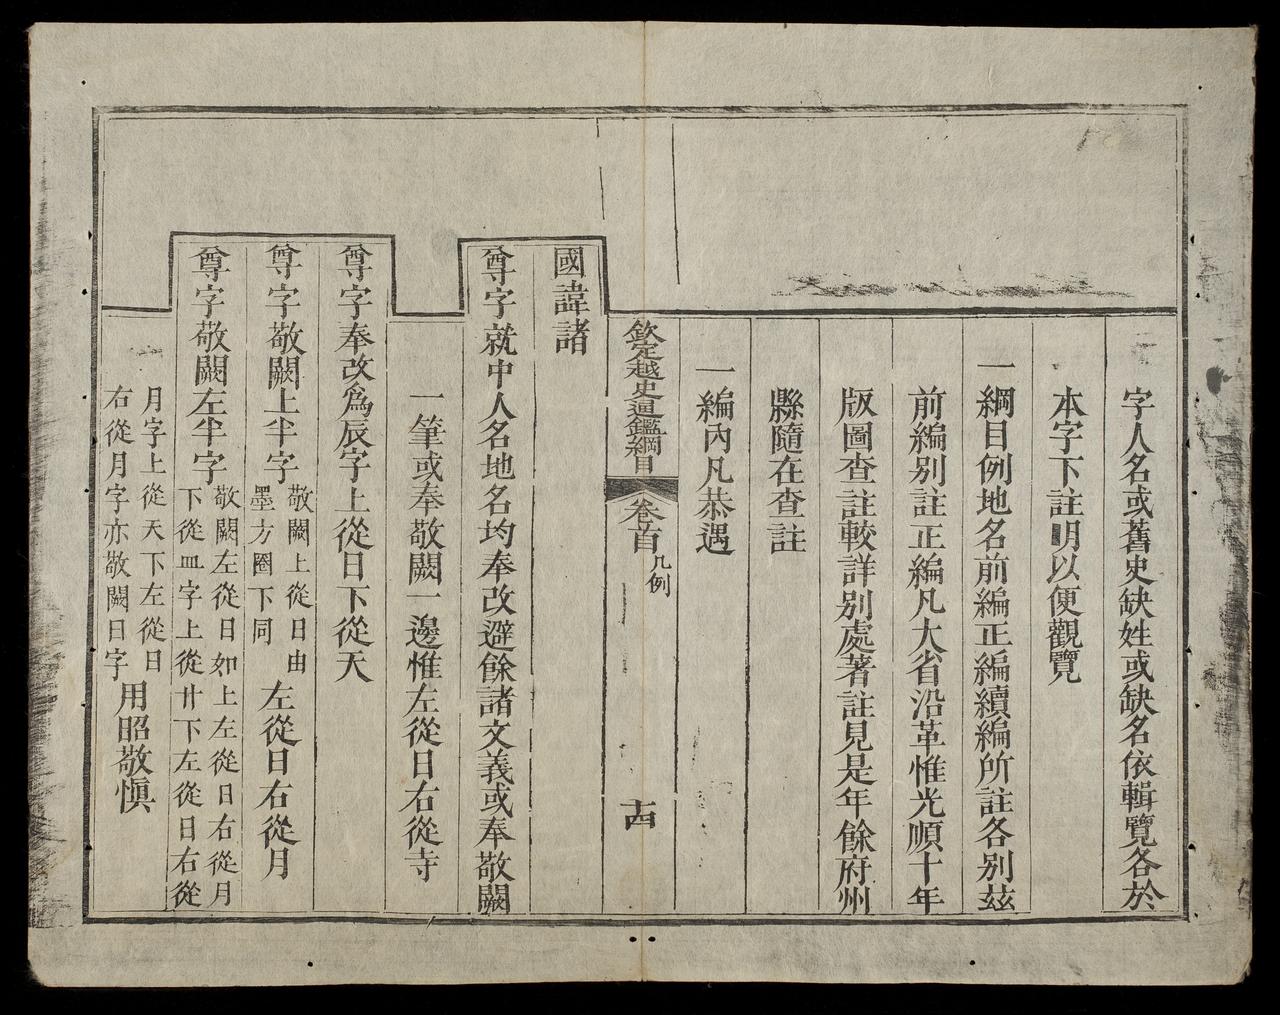 字人名或舊史缺姓或缺名依輯覽各於
本字下註明以便觀覽
一綱目例地名前編正編續編所註各別茲
前編別註正編凡大省沿革惟光順十年
版圖查註較詳別處著註見是年餘府州
縣隨在查註
一編內凡恭遇
欽定越史通鑑綱目
卷首
凡例
十四
國諱諸
尊字就中人名地名均奉改避餘諸文義或奉敬闕
一筆或奉敬闕一邊惟左從日右從寺
尊字奉改爲辰字上從日下從天
尊字敬闕上半字
敬闕上從日由
墨方圈下同
左從日右從月
尊字敬闕左半字
敬闕左從日如上左從日右從月
下從皿字上從廿下左從日右從
月字上從天下左從日
右從月字亦敬闕日字
用昭敬慎